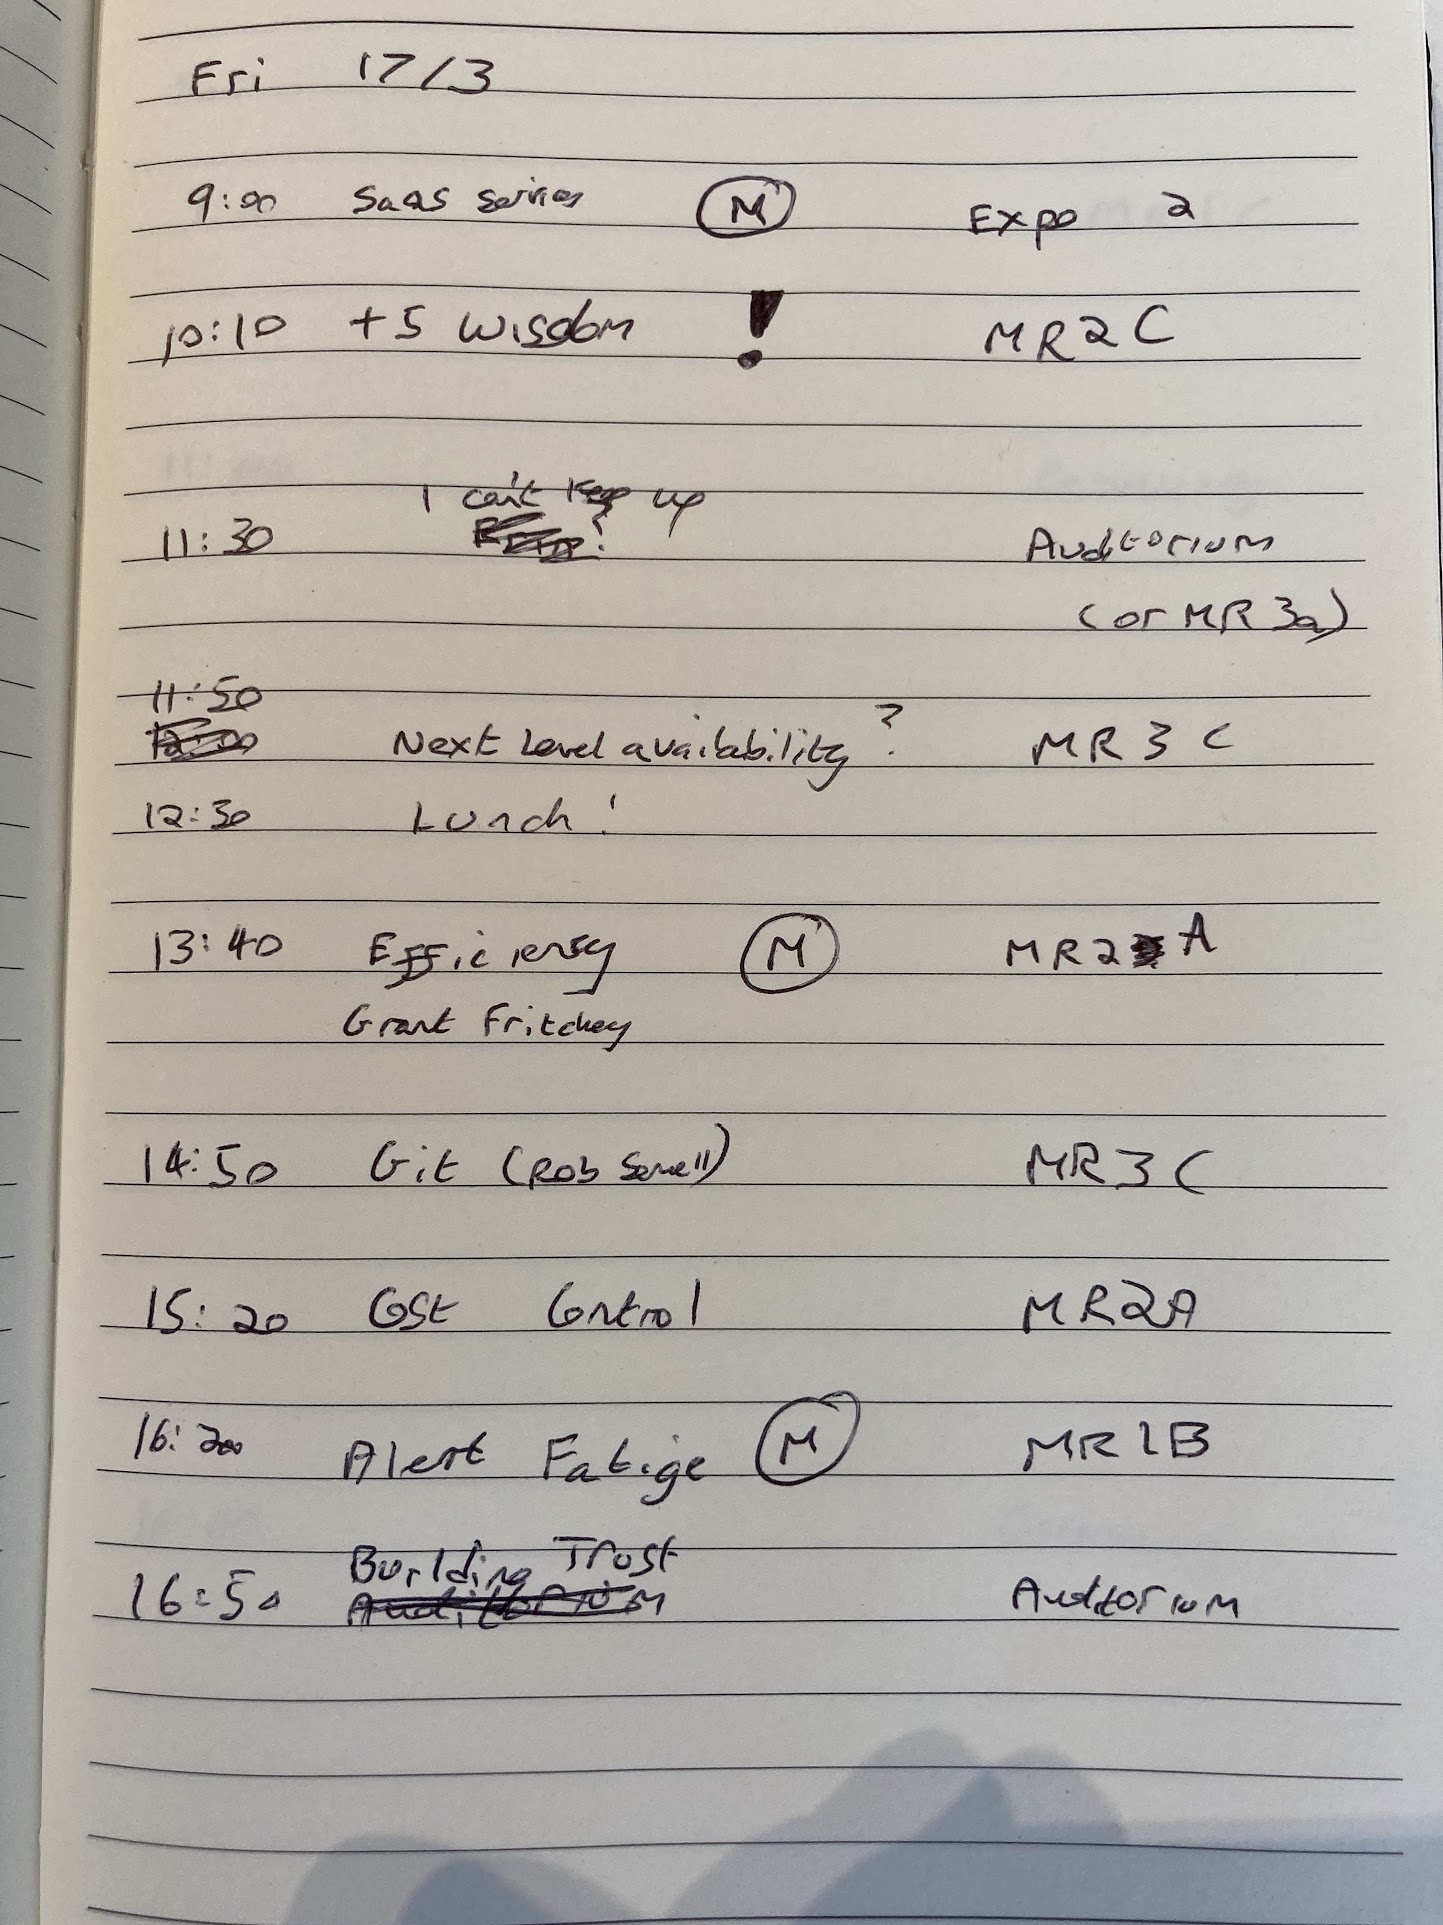 Fri 17/3
9:00 SaaS Services M Expo 2
10:10 +5 Wisdom ! MR2C
I can't keep up
11:30 ? Auditorium
(or MR 3a)
11:50
Next Level availability? MR3C
12:30 Lunch!
13:40 Efficiency M MR2A
Grant Fritchey
14:50 Git (Rob Sewell) MR3C
15:20 Cost Control MR2A
16:20 Alert Fatige M MR1B
Building Trust
16:50 Auditorium Auditorium